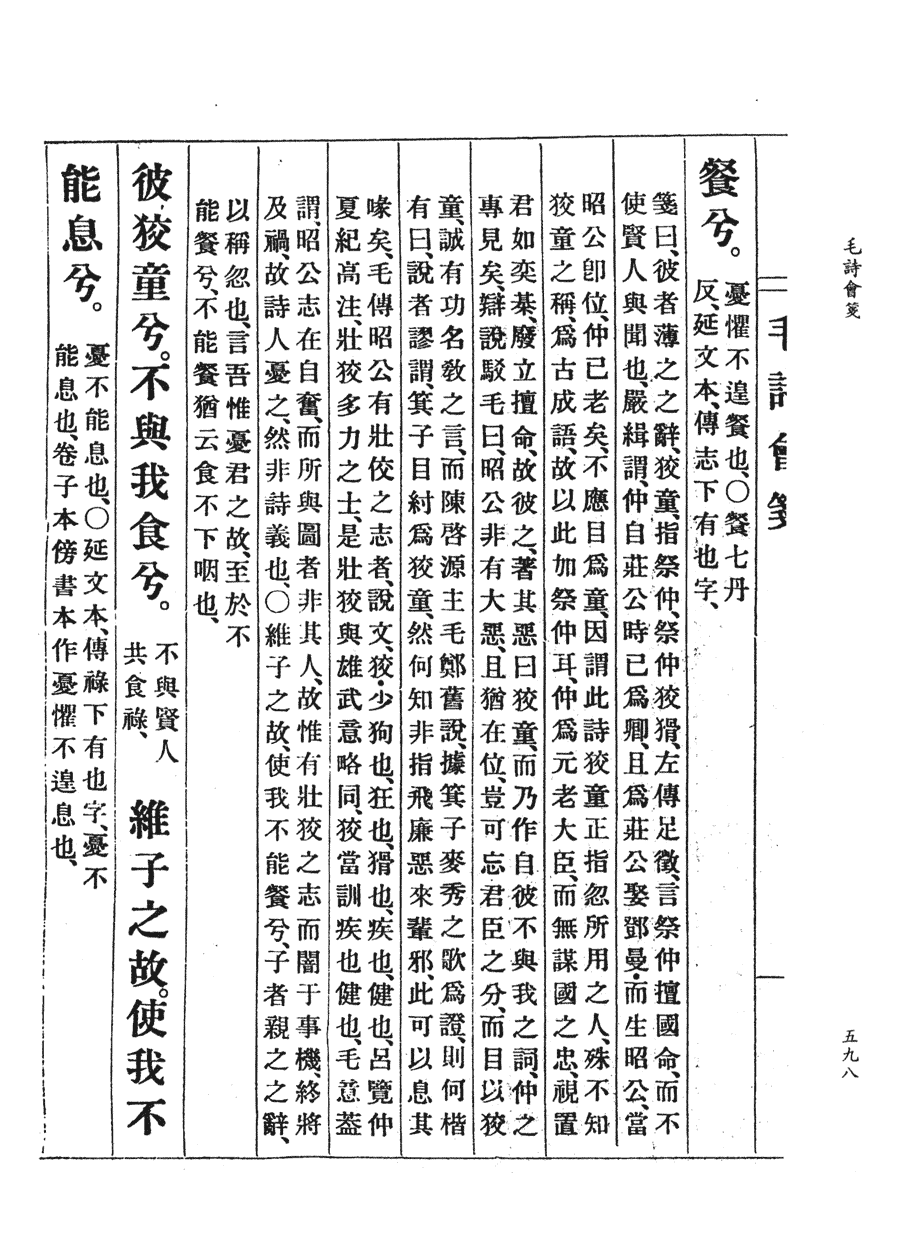 毛詩會箋
五九八
毛詩會箋
餐兮。
憂懼不遑餐也、〇餐七丹
反、延文本、傳志下有也字、
箋曰、彼者薄之之辭、狡童、指祭仲、祭仲狡猾、左傳足徵、言祭仲擅國命、而不
使賢人與聞也、嚴緝謂、仲自莊公時已爲卿、且爲莊公娶鄧曼、而生昭公、當
昭公卽位、仲已老矣、不應目爲童、因謂此詩狡童正指忽所用之人、殊不知
狡童之稱、爲古成語、故以此加祭仲耳、仲爲元老大臣、而無謀國之忠、視置
君如奕棊、廢立擅命、故彼之、著其惡曰狡童、而乃作自彼不與我之詞、仲之
專見矣、辯說駁毛曰、昭公非有大惡、且猶在位、豈可忘君臣之分、而目以狡
童、誠有功名敎之言、而陳啓源主毛鄭舊說、據箕子麥秀之歌爲證、則何楷
有曰、說者謬謂、箕子目紂爲狡童、然何知非指飛廉惡來輩邪、此可以息其
喙矣、毛傳昭公有壯佼之志者、說文、狡·少狗也、狂也、猾也、疾也、健也、呂覽仲
夏紀高注、壯狡多力之士、是壯狡與雄武意略同、狡當訓疾也健也、毛意蓋
謂、昭公志在自奮、而所與圖者非其人、故惟有壯狡之志而闇于事機、終將
及禍、故詩人憂之、然非詩義也、〇維子之故、使我不能餐兮、子者親之之辭、
以稱忽也、言吾惟憂君之故、至於不
能餐兮、不能餐猶云食不下咽也、
彼狡童兮。不與我食兮。
不與賢人
共食祿、
維子之故。使我不
能息兮。
憂不能息也、〇延文本、傳祿下有也字、憂不
能息也、卷子本傍書本作憂懼不遑息也、